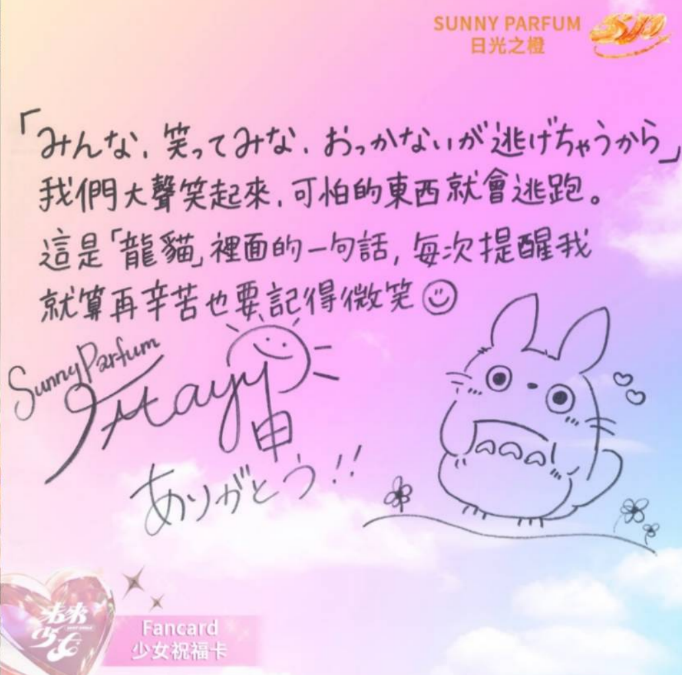 SUNNY PARFUM
日光之橙
「みんな、笑ってみな、おっかないが逃げちゃうから」
我們大聲笑起來,可怕的東西就會逃跑。
這是「龍貓」裡面的一句話,每次提醒我
就算再辛苦也要記得微笑
Sunny Parfum
Mayu
申
ありがとう!!
未來少女
Fancard
少女祝福卡